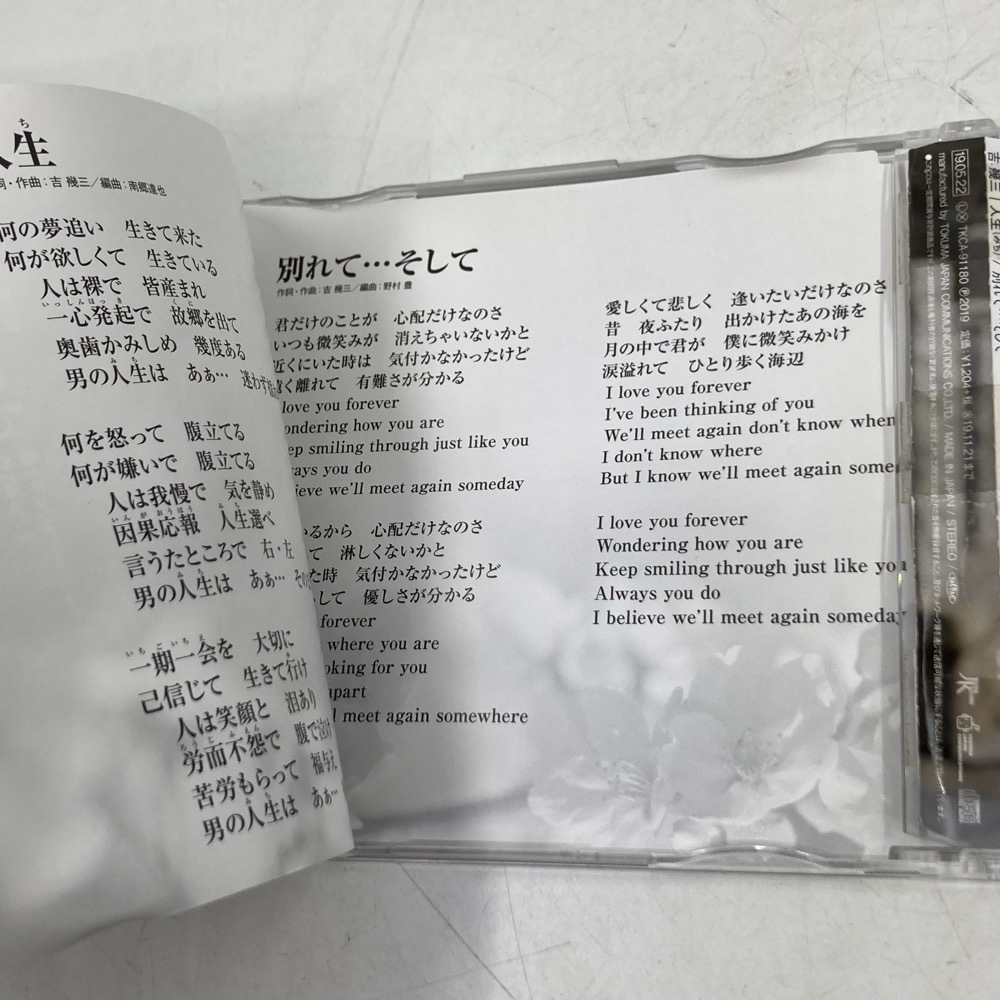 人生
詞・作曲：吉 幾三／編曲：南郷達也
何の夢追い 生きて来た
何が欲しくて 生きている
人は裸で 皆産まれ
一心発起で 故郷を出て
奥歯かみしめ 幾度ある
男の人生は あぁ… 迷わず
何を怒って 腹立てる
何が嫌いで 腹立てる
人は我慢で 気を静め
因果応報 人生選べ
言うたところで 右・左
男の人生は あぁ…
一期一会を 大切に
己信じて 生きて行け
人は笑顔と 泪あり
労而不怨で 腹で泣け
苦労もらって 福与え
男の人生は あぁ…
別れて…そして
作詞・作曲：吉 幾三／編曲：野村 豊
君だけのことが 心配だけなのさ
いつも微笑みが 消えちゃいないかと
近くにいた時は 気付かなかったけど
く離れて 有難さが分かる
love you forever
ondering how you are
eep smiling through just like you
lways you do
elieve we'll meet again someday
いるから 心配だけなのさ
て 淋しくないかと
た時 気付かなかったけど
して 優しさが分かる
forever
where you are
oking for you
apart
meet again somewhere
愛しくて悲しく 逢いたいだけなのさ
昔 夜ふたり 出かけたあの海を
月の中で君が 僕に微笑みかけ
涙溢れて ひとり歩く海辺
I love you forever
I've been thinking of you
We'll meet again don't know when
I don't know where
But I know we'll meet again some
I love you forever
Wondering how you are
Keep smiling through just like you
Always you do
I believe we'll meet again someday
吉 幾三／人生
19.05.22 TKCA-91180 Ⓟ2019 定価：¥1,204+税 19.11.21まで
manufactured by TOKUMA JAPAN COMMUNICATIONS CO., LTD. / MADE IN JAPAN / STEREO /